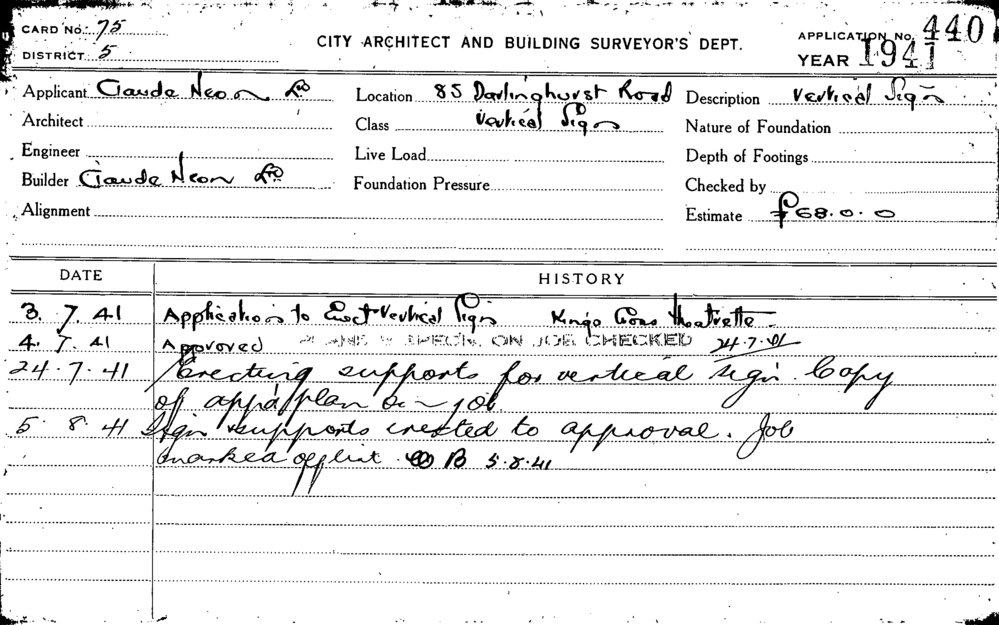 CARD No. 75
DISTRICT 5
CITY ARCHITECT AND BUILDING SURVEYOR'S DEPT.
APPLICATION No. 440
YEAR 1941
Applicant Claude Neon Ltd
Location 85 Darlinghurst Road
Description Vertical Sign
Architect
Class Vertical Sign
Nature of Foundation
Engineer
Live Load
Depth of Footings
Builder Claude Neon Ltd
Foundation Pressure
Checked by
Alignment
Estimate £68.0.0
DATE
HISTORY
3. 7. 41 Application to Erect Vertical Sign Kings Cross Theatrette
4. 7. 41 Approved PLANS & SPECN. ON JOB CHECKED 24.7.41
24.7.41 Erecting supports for vertical sign. Copy
of appd plan on job
5. 8. 41 Sign & supports erected to approval. Job
marked off list. B 5.8.41